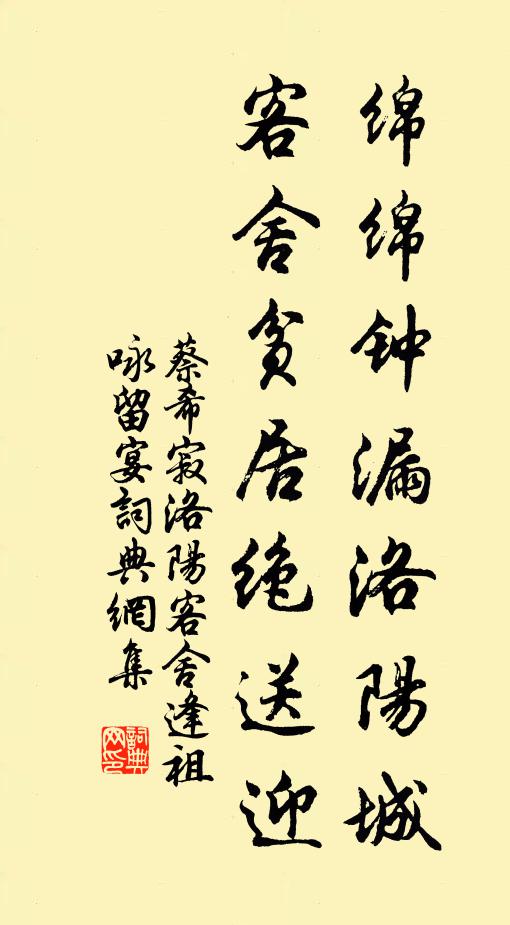 绵绵钟漏洛陽城
客舍貧居绝送迎
蔡希寂洛陽客舍逢祖
咏留宴詞典網集
詞典
网印